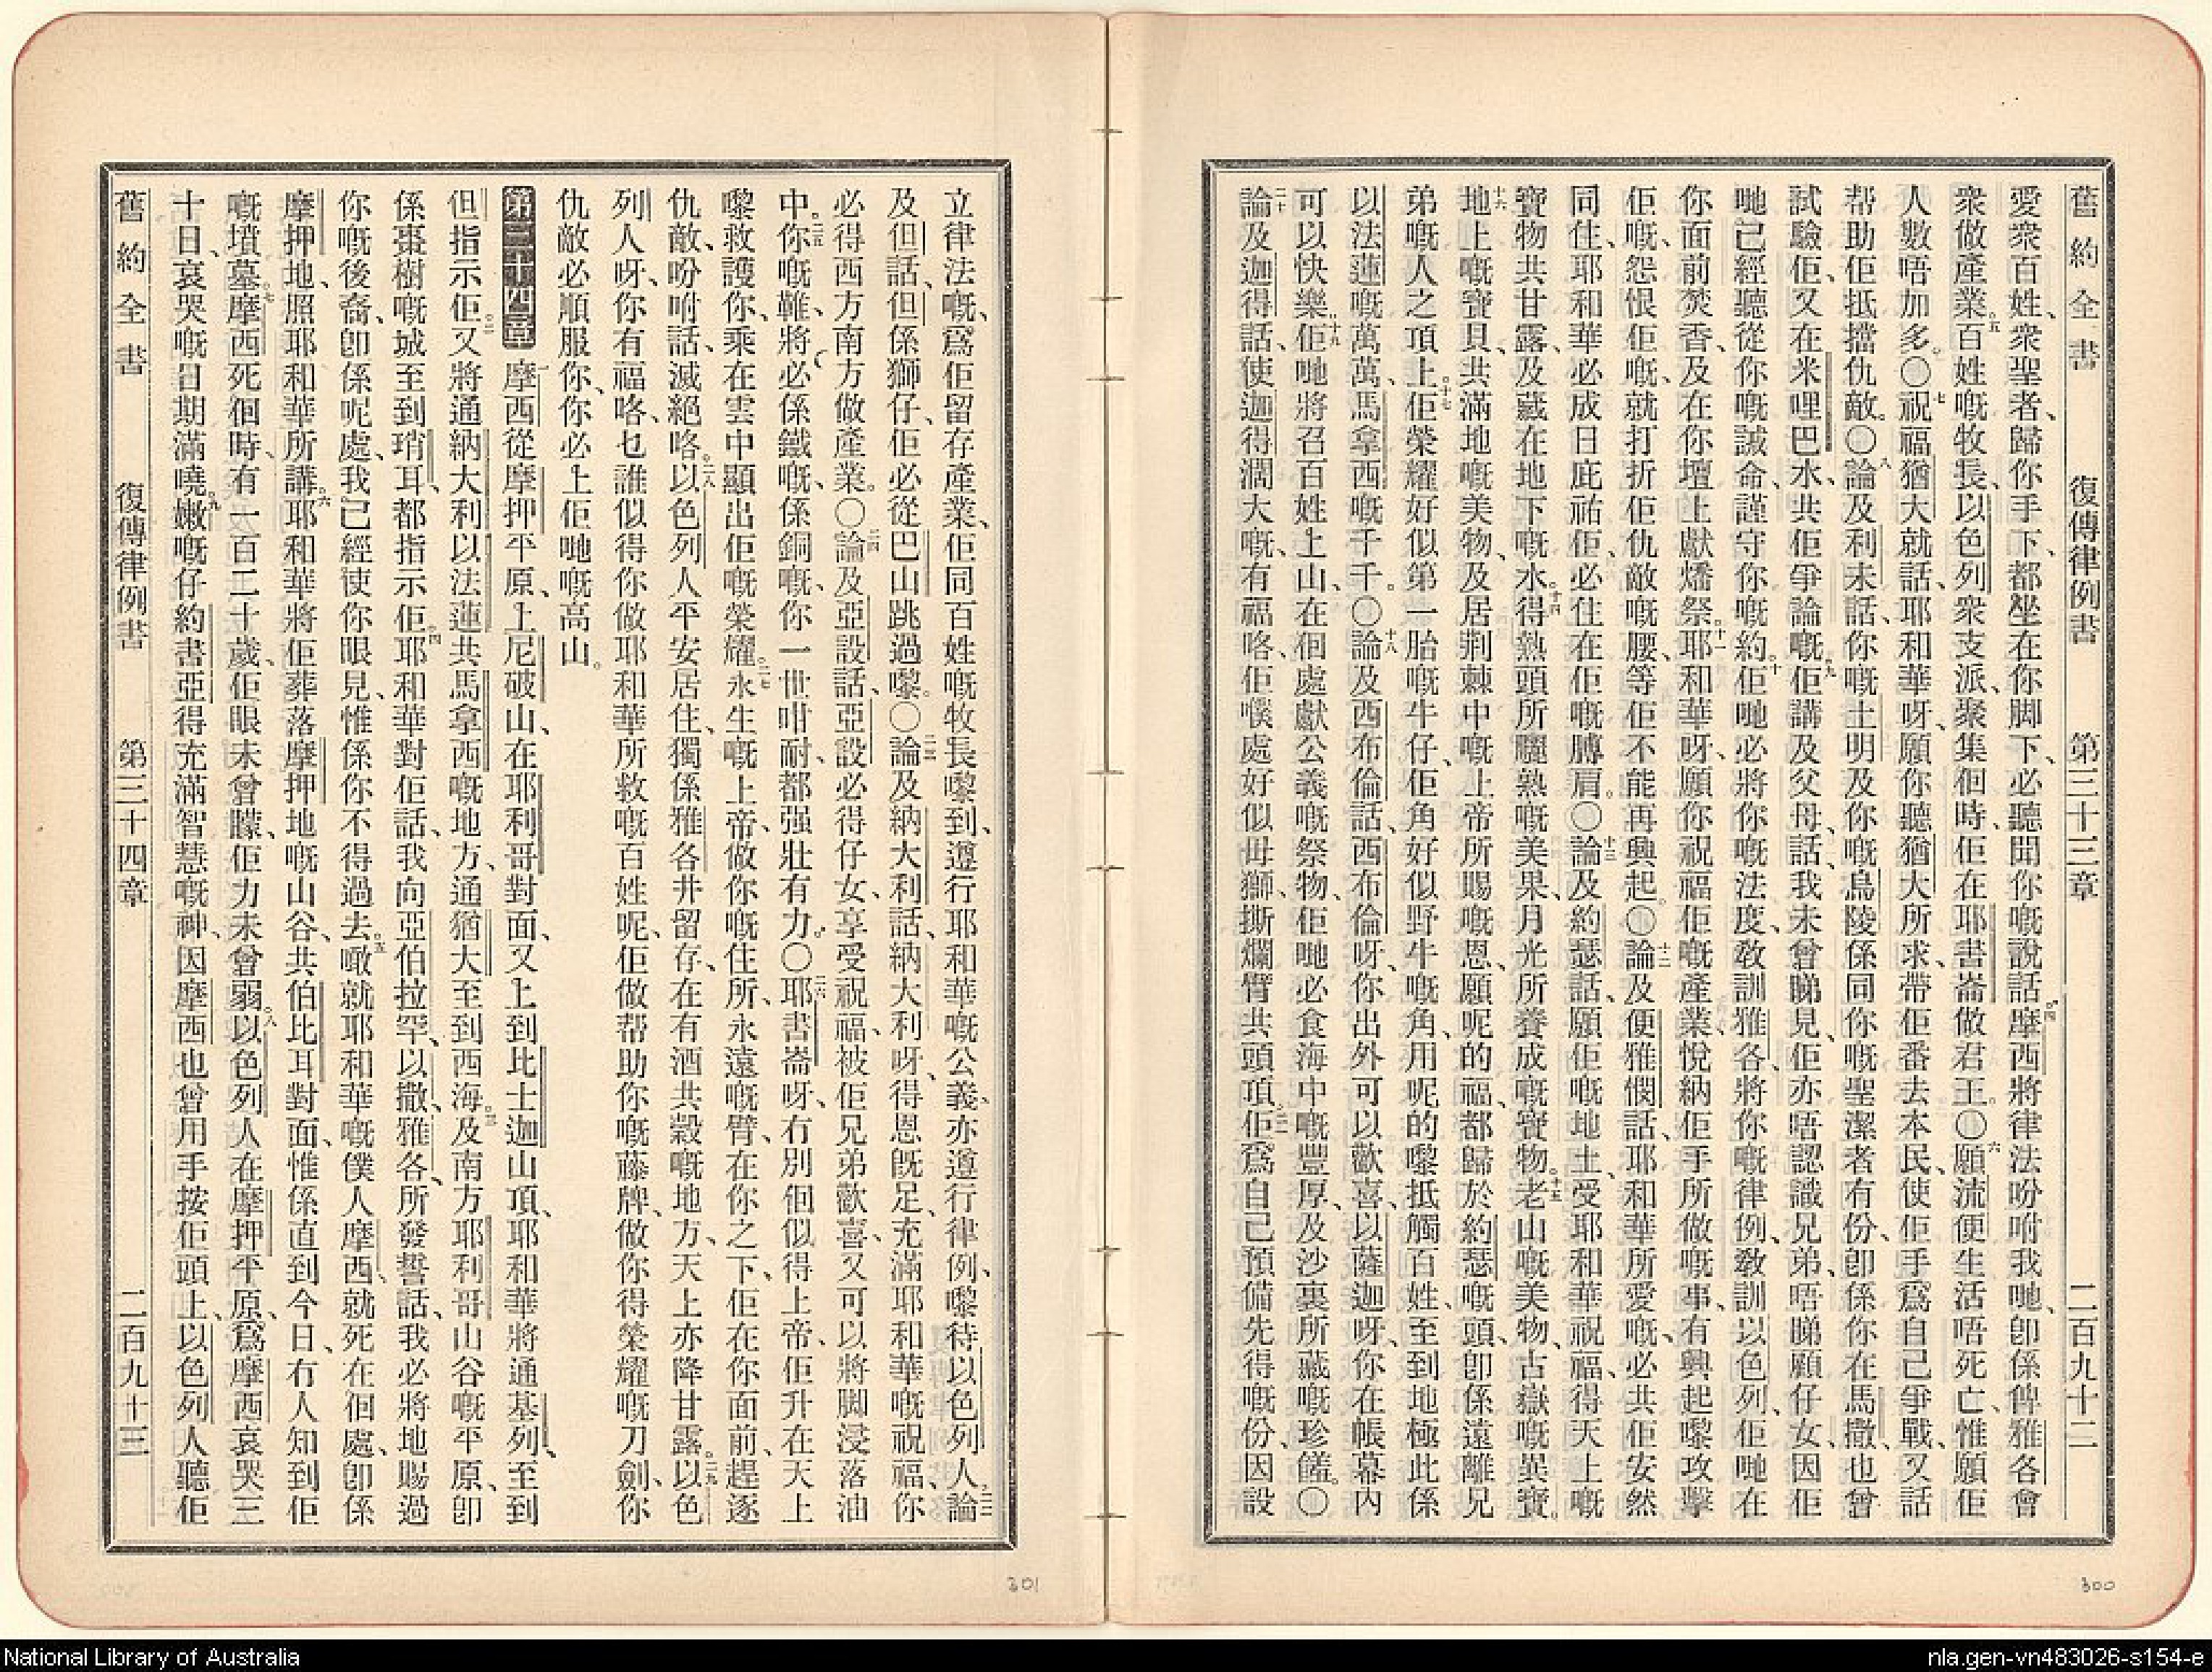 舊約全書　復傳律例書　第三十三章　二百九十二
愛衆百姓、衆聖者、歸你手下、都坐在你脚下、必聽聞你嘅說話。四摩西將律法吩咐我哋、卽係俾雅各會
衆做產業。五百姓嘅牧長、以色列衆支派、聚集個時、佢在耶書崙做君王。○六願流便生活唔死亡、惟願佢
人數唔加多。○七祝福猶大就話、耶和華呀、願你聽猶大所求、帶佢番去本民、使佢手爲自己爭戰、又話
帮助佢抵擋仇敵。○八論及利未話、你嘅土明及你嘅烏陵係同你嘅聖潔者有份、卽係你在馬撒、也曾
試驗佢、又在米哩巴水、共佢爭論嘅。九佢講及父母、話、我未曾睇見、佢亦唔認識兄弟、唔睇顧仔女、因佢
哋已經聽從你嘅誡命、謹守你嘅約。十佢哋必將你嘅法度、教訓雅各、將你嘅律例、教訓以色列、佢哋在
你面前焚香、及在你壇上獻燔祭。十一耶和華呀、願你祝福佢嘅產業、悅納佢手所做嘅事、有興起嚟攻擊
佢嘅、怨恨佢嘅、就打折佢仇敵嘅腰、等佢不能再興起。○十二論及便雅憫話、耶和華所愛嘅、必共佢安然
同住、耶和華必成日庇祐佢、必住在佢嘅膊肩。○十三論及約瑟話、願佢嘅地土、受耶和華祝福、得天上嘅
寶物共甘露、及藏在地下嘅水。十四得熱頭所曬熟嘅美果、月光所養成嘅寶物。十五老山嘅美物、古嶽嘅異寶。
十六地上嘅寶貝、共滿地嘅美物、及居荆棘中嘅上帝所賜嘅恩、願呢的福、都歸於約瑟嘅頭、卽係遠離兄
弟嘅人之頂上。十七佢榮耀好似第一胎嘅牛仔、佢角好似野牛嘅角、用呢的嚟抵觸百姓、至到地極、此係
以法蓮嘅萬萬、馬拿西嘅千千。○十八論及西布倫話、西布倫呀、你出外可以歡喜、以薩迦呀、你在帳幕內
可以快樂。十九佢哋將召百姓上山、在個處獻公義嘅祭物、佢哋必食海中嘅豐厚、及沙裏所藏嘅珍饈。○
二十論及迦得話、使迦得濶大嘅、有福咯、佢喺處好似母獅、撕爛臂共頭頂。二一佢爲自己預備先得嘅份、因設
立律法嘅、爲佢留存產業、佢同百姓嘅牧長嚟到、遵行耶和華嘅公義、亦遵行律例、嚟待以色列人。二二論
及但話、但係獅仔、佢必從巴山跳過嚟。○二三論及納大利話、納大利呀、得恩旣足、充滿耶和華嘅祝福、你
必得西方南方做產業。○二四論及亞設話、亞設必得仔女、享受祝福、被佢兄弟歡喜、又可以將脚浸落油
中。二五你嘅鞋、將必係鐵嘅、係銅嘅、你一世咁耐、都强壯有力。○二六耶書崙呀、冇別個似得上帝、佢升在天上
嚟救護你、乘在雲中顯出佢嘅榮耀。二七永生嘅上帝、做你嘅住所、永遠嘅臂、在你之下、佢在你面前、趕逐
仇敵、吩咐話、滅絕咯。二八以色列人平安居住、獨係雅各井留存、在有酒共穀嘅地方、天上亦降甘露。二九以色
列人呀、你有福咯、乜誰似得你做耶和華所救嘅百姓呢、佢做帮助你嘅藤牌、做你得榮耀嘅刀劍、你
仇敵必順服你、你必上佢哋嘅高山。
第三十四章　一摩西從摩押平原、上尼破山、在耶利哥對面、又上到比士迦山頂、耶和華將通基列、至到
但指示佢。二又將通納大利以法蓮共馬拿西嘅地方、通猶大至到西海。三及南方耶利哥山谷嘅平原、卽
係棗樹嘅城至到瑣耳、都指示佢。四耶和華對佢話、我向亞伯拉罕、以撒、雅各、所發誓話、我必將地賜過
你嘅後裔、卽係呢處、我已經使你眼見、惟係你不得過去。五噉就耶和華嘅僕人摩西、就死在個處、卽係
摩押地、照耶和華所講。六耶和華將佢葬落摩押地嘅山谷、共伯比耳對面、惟係直到今日、冇人知到佢
嘅墳墓。七摩西死個時、有一百二十歲、佢眼未曾矇、佢力未曾弱。八以色列人在摩押平原、爲摩西哀哭三
十日、哀哭嘅日期滿嘵。九嫩嘅仔約書亞得充滿智慧嘅神、因摩西也曾用手按佢頭上、以色列人聽佢
舊約全書　復傳律例書　第三十四章　二百九十三
301
300
National Library of Australia
nla.gen-vn483026-s154-e